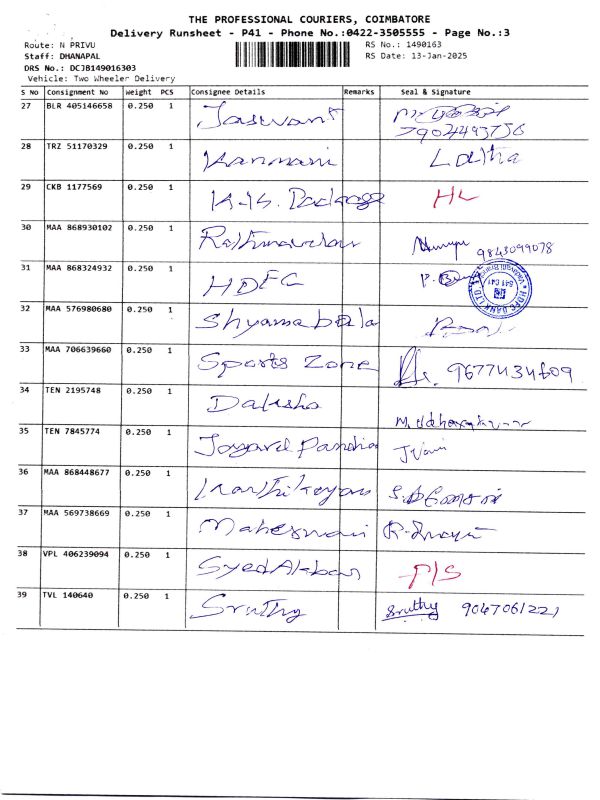 THE PROFESSIONAL COURIERS, COIMBATORE
Delivery Runsheet - P41 - Phone No.:0422-3505555 - Page No.:3
Route: N PRIVU
RS No.: 1490163
Staff: DHANAPAL
RS Date: 13-Jan-2025
DRS No.: DCJB149016303
Vehicle: Two Wheeler Delivery
S No Consignment No Weight PCS Consignee Details Remarks Seal & Signature
27 BLR 405146658 0.250 1 Jaswant
7904493756
28 TRZ 51170329 0.250 1 Kanmani Lalitha
29 CKB 1177569 0.250 1 HL
30 MAA 868930102 0.250 1 9843099078
31 MAA 868324932 0.250 1 HDFC
HDFC BANK LTD
32 MAA 576980680 0.250 1 Shyamabala
33 MAA 706639660 0.250 1 Sports Zone 9677434609
34 TEN 2195748 0.250 1
35 TEN 7845774 0.250 1
36 MAA 868448677 0.250 1 Karthikeyan
37 MAA 569738669 0.250 1
38 VPL 406239094 0.250 1 Syed Akbar P/S
39 TVL 140640 0.250 1 Sruthy Sruthy 9047061221